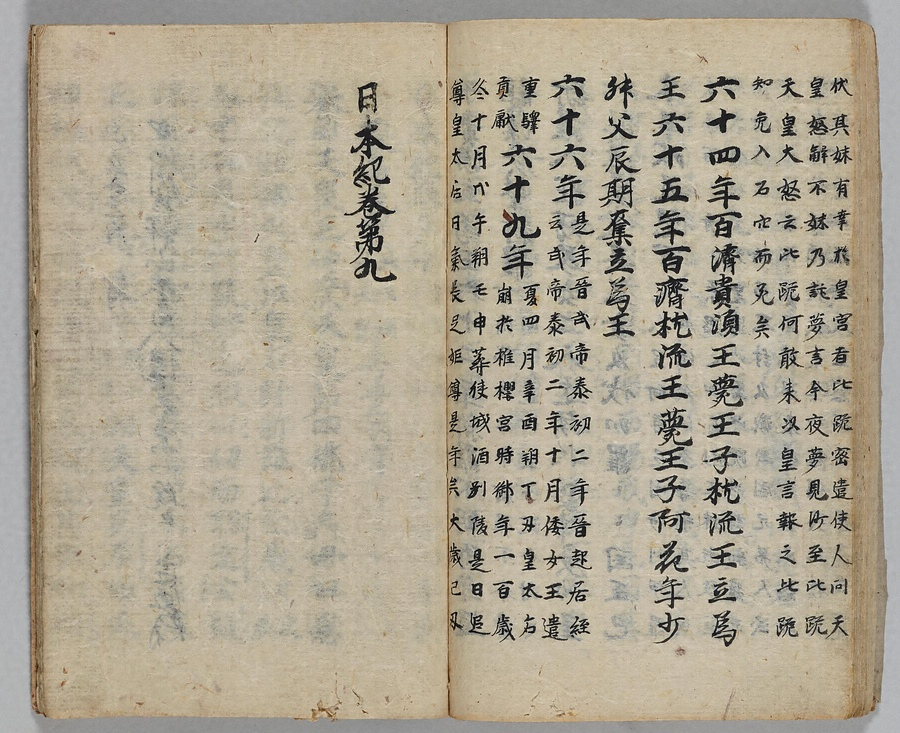 伏其妹有幸於皇宮者比跪密遣使人问天
皇怒解不妹乃託夢言今夜夢見沙至比跪
天皇大怒云比跪何敢来以皇言報之比跪
知免入石穴而死矣
六十四年百濟貴湏王薨王子枕流王立爲
王六十五年百濟枕流王薨王子阿花年少
叔父辰斯奪立爲王
六十六年
是年晋武帝泰初二年晋起居経
云武帝泰初二年十月倭女王遣
重驛
貢獻
六十九年
夏四月辛酉朔丁丑皇太后
崩於稚櫻宮時御年一百歳
冬十月戊午朔壬申葬侠城酒列陵是日追
尊皇太后曰氣長足姫尊是年矣大歳己丑
日本紀卷第九